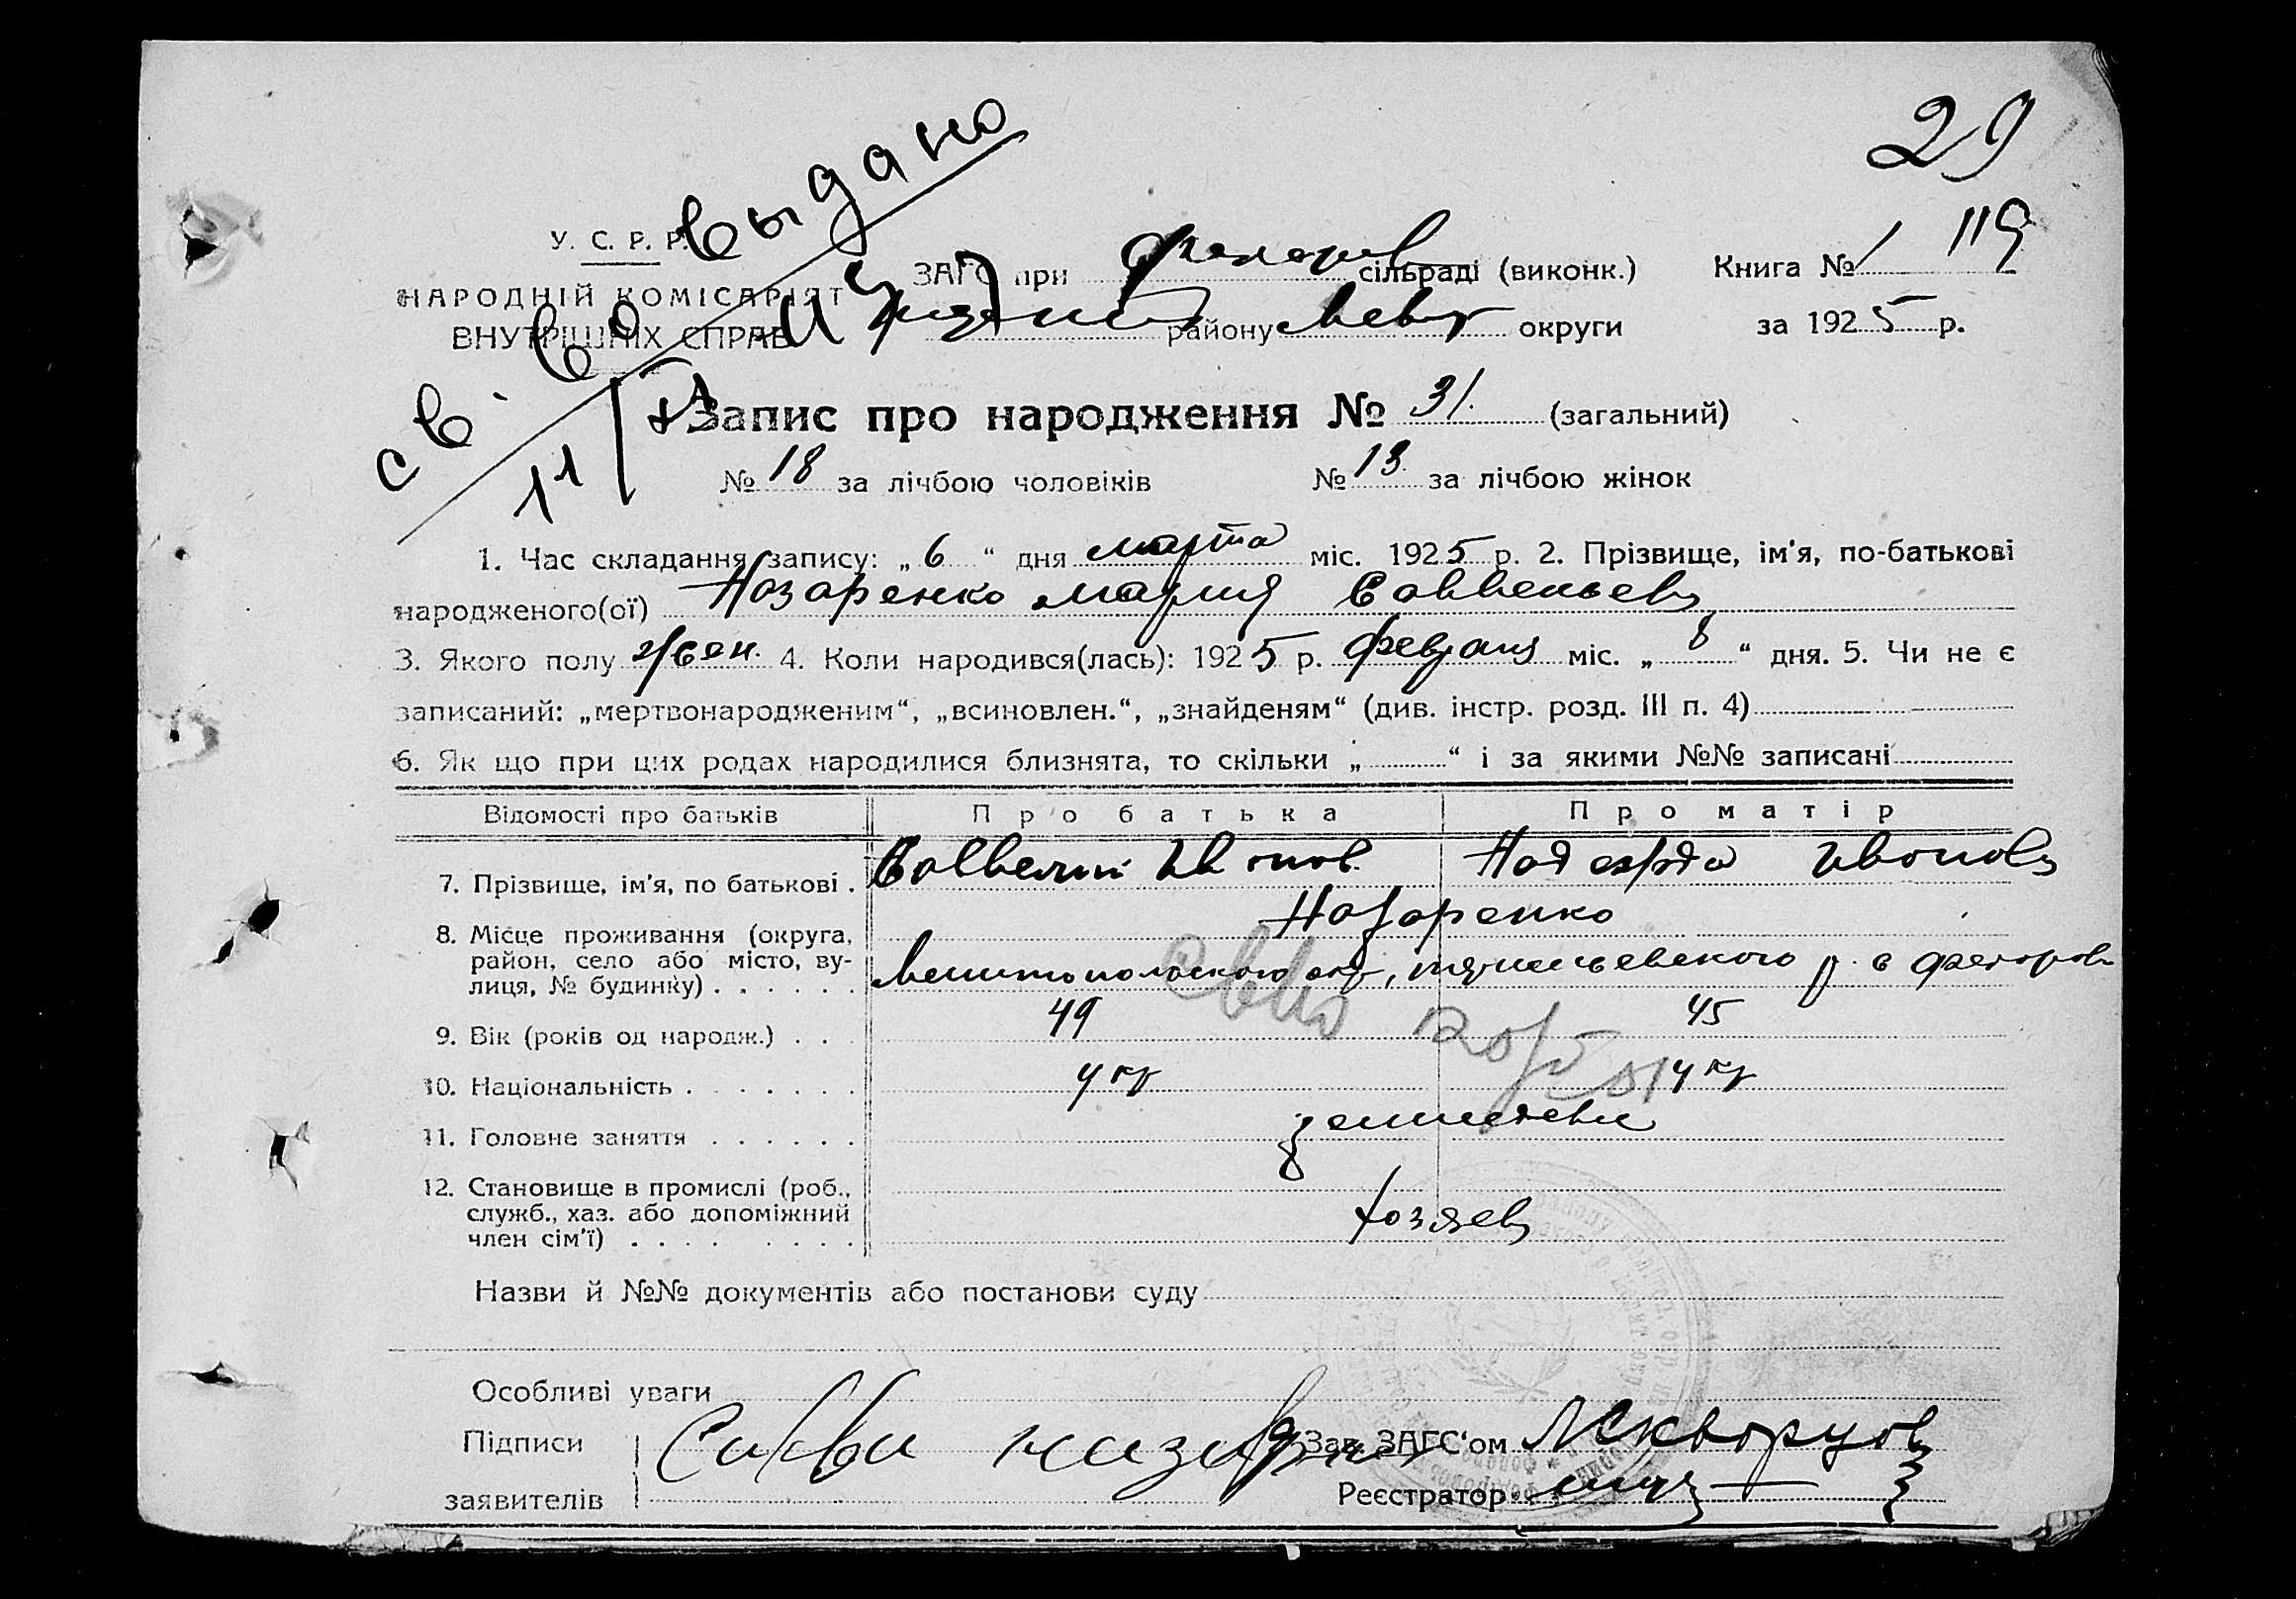 29
св-во выдано
У. С. Р. Р.
НАРОДНІЙ КОМІСАРІЯТ
ВНУТРІШНІХ СПРАВ
ЗАГС при Федоров сільраді (виконк.)
Книга № 1 119
району округи
за 1925 р.
Запис про народження № 31. (загальний)
№ 18 за лічбою чоловіків № 13 за лічбою жінок
1. Час складання запису: „ 6 “ дня марта міс. 1925 р. 2. Прізвище, ім'я, по-батькові
народженого(ої) Назаренко Мария Савельев
3. Якого полу жен. 4. Коли народився(лась): 1925 р. февраля міс. „ 8 “ дня. 5. Чи не є
записаний: „мертвонародженим“, „всиновлен.“, „знайденям“ (див. інстр. розд. III п. 4)
6. Як що при цих родах народилися близнята, то скільки „ “ і за якими №№ записані
Відомості про батьків Про батька Про матір
7. Прізвище, ім'я, по батькові . Савелий Иванов. Надежда Иванов
Назаренко
8. Місце проживання (округа,
район, село або місто, ву-
лиця, № будинку) . . . . . . Мелитопольского окр, р. с Федоровк
9. Вік (років од народж.) . . . 49 45
10. Національність . . . . . . . укр укр
11. Головне заняття . . . . . . земледел
12. Становище в промислі (роб.,
служб., хаз. або допоміжний
член сім'ї) . . . . . . . . Хозяев
Назви й №№ документів або постанови суду
Особливі уваги
Підписи
заявителів
Сави Назарен
Зав. ЗАГС'ом Скворцов
Реєстратор